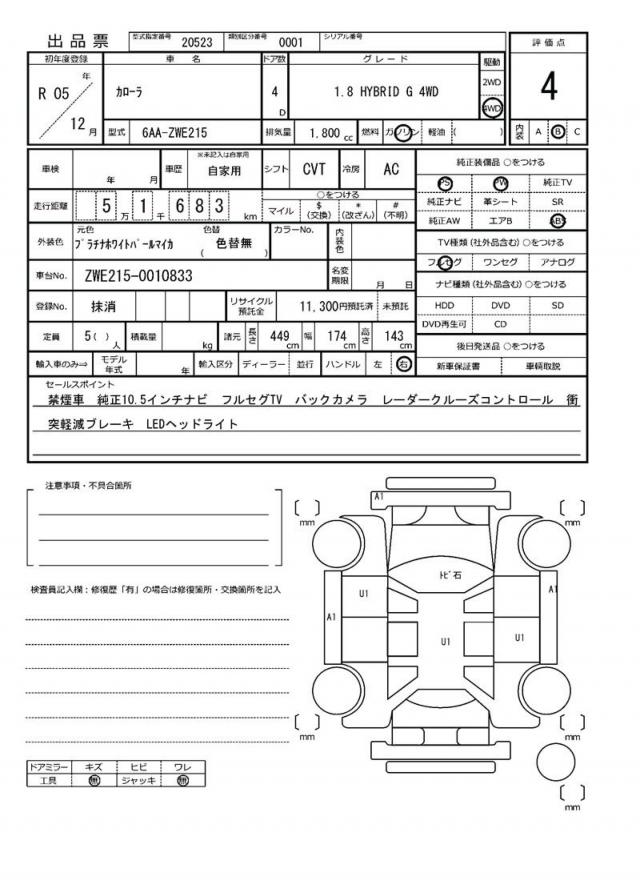 出品票 型式指定番号 20523 類別区分番号 0001 シリアル番号
評価点
4
初年度登録 車名 ドア数 グレード 駆動
R 05 年 12 月 カローラ 4 D 1.8 HYBRID G 4WD 2WD 4WD
型式 6AA-ZWE215 排気量 1,800 cc 燃料 ガソリン 軽油 ( ) 内装 A B C
車検 年 月 車歴 ※未記入は自家用 自家用 シフト CVT 冷房 AC
走行距離 5 万 1 千 6 8 3 km ○をつける
マイル $ (交換) * (改ざん) # (不明)
外装色 元色 プラチナホワイトパールマイカ 色替 ( 色替無 ) カラーNo. 内装色
車台No. ZWE215-0010833 名変期限 月 日
登録No. 抹消 リサイクル預託金 11,300円預託済 未預託
定員 5( ) 人 積載量 kg 諸元 長さ 449 cm 幅 174 cm 高さ 143 cm
輸入車のみ⇒ モデル年式 年 輸入区分 ディーラー 並行 ハンドル 左 右
純正装備品 ○をつける
PS PW 純正TV
純正ナビ 革シート SR
純正AW エアB ABS
TV種類(社外品含む) ○をつける
フルセグ ワンセグ アナログ
ナビ種類(社外品含む) ○をつける
HDD DVD SD
DVD再生可 CD
後日発送品 ○をつける
新車保証書 車輌取説
セールスポイント
禁煙車 純正10.5インチナビ フルセグTV バックカメラ レーダークルーズコントロール 衝
突軽減ブレーキ LEDヘッドライト
注意事項・不具合箇所
検査員記入欄:修復歴「有」の場合は修復箇所・交換箇所を記入
ドアミラー キズ ヒビ ワレ
工具 無 ジャッキ 無
A1
mm
mm
トビ石
U1
A1
A1
U1
U1
mm
mm
mm